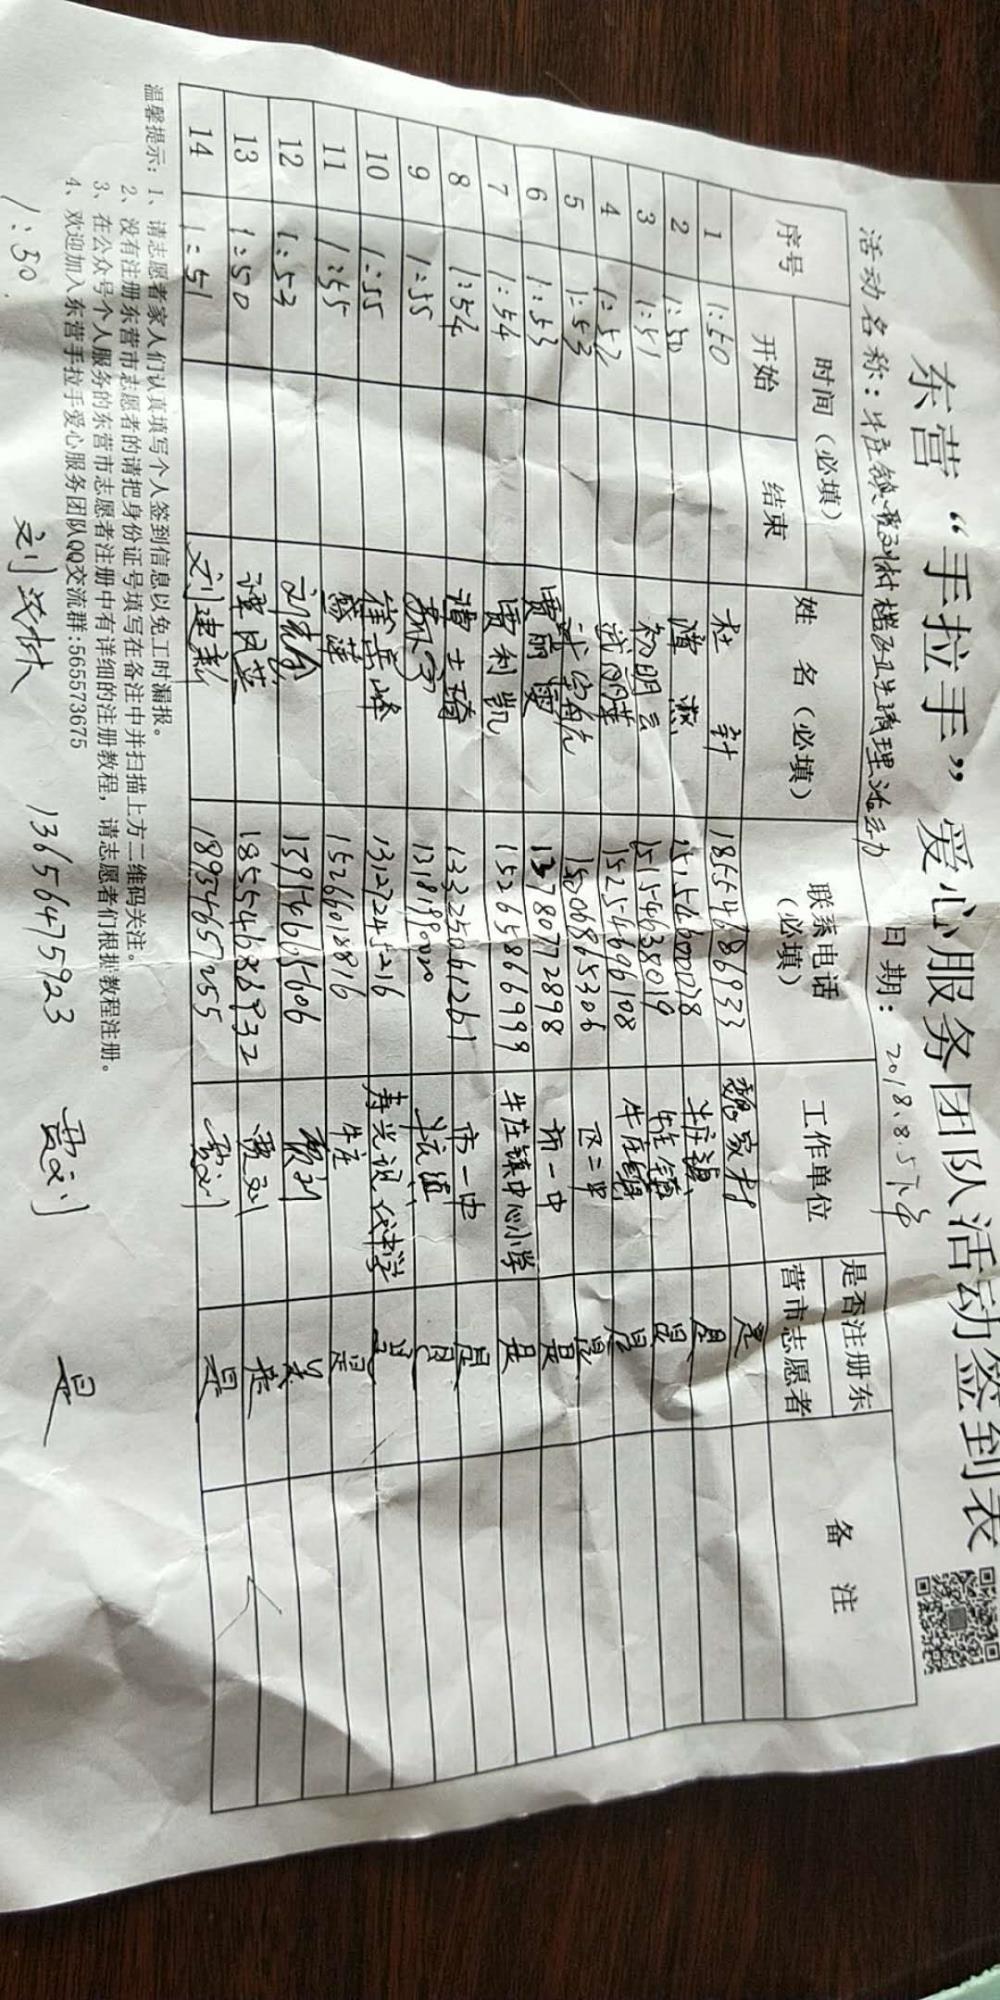 东营“手拉手”爱心服务团队活动签到表
活动名称：牛庄镇 刘村 卫生清理活动 日期：2018.8.5下午
序号 时间（必填） 姓 名（必填） 联系电话（必填） 工作单位 是否注册东营市志愿者 备 注
开始 结束
1 1:50 杜 18554686933 魏家村 是
2 1:50 谭 淑 牛庄镇 是
3 1:51 初明云 15154638019 牛庄镇 是
4 1:52 武丽萍 15254696108 牛庄镇 是
5 1:53 15068665306 区二中 是
6 1:53 贾丽雯 13780772898 市一中 是
7 1:54 贾利凯 15265866999 牛庄镇中心小学 是
8 1:54 谭士琦 13325061261 市一中 是
9 1:55 是
10 1:55 崔岳峰 13127245216 寿光现代中学 是
11 1:55 萍 15266018816 牛庄 是
12 1:53 是
13 1:50 谭风英 18554686932 是
14 1:51 刘建新 18954657255 是
温馨提示：1、请志愿者家人们认真填写个人签到信息以免工时漏报。
2、没有注册东营市志愿者的请把身份证号填写在备注中并扫描上方二维码关注。
3、在公众号个人服务的东营市志愿者注册中有详细的注册教程，请志愿者们根据教程注册。
4、欢迎加入东营手拉手爱心服务团队QQ交流群:565573675
1:50 刘 13656475923 是